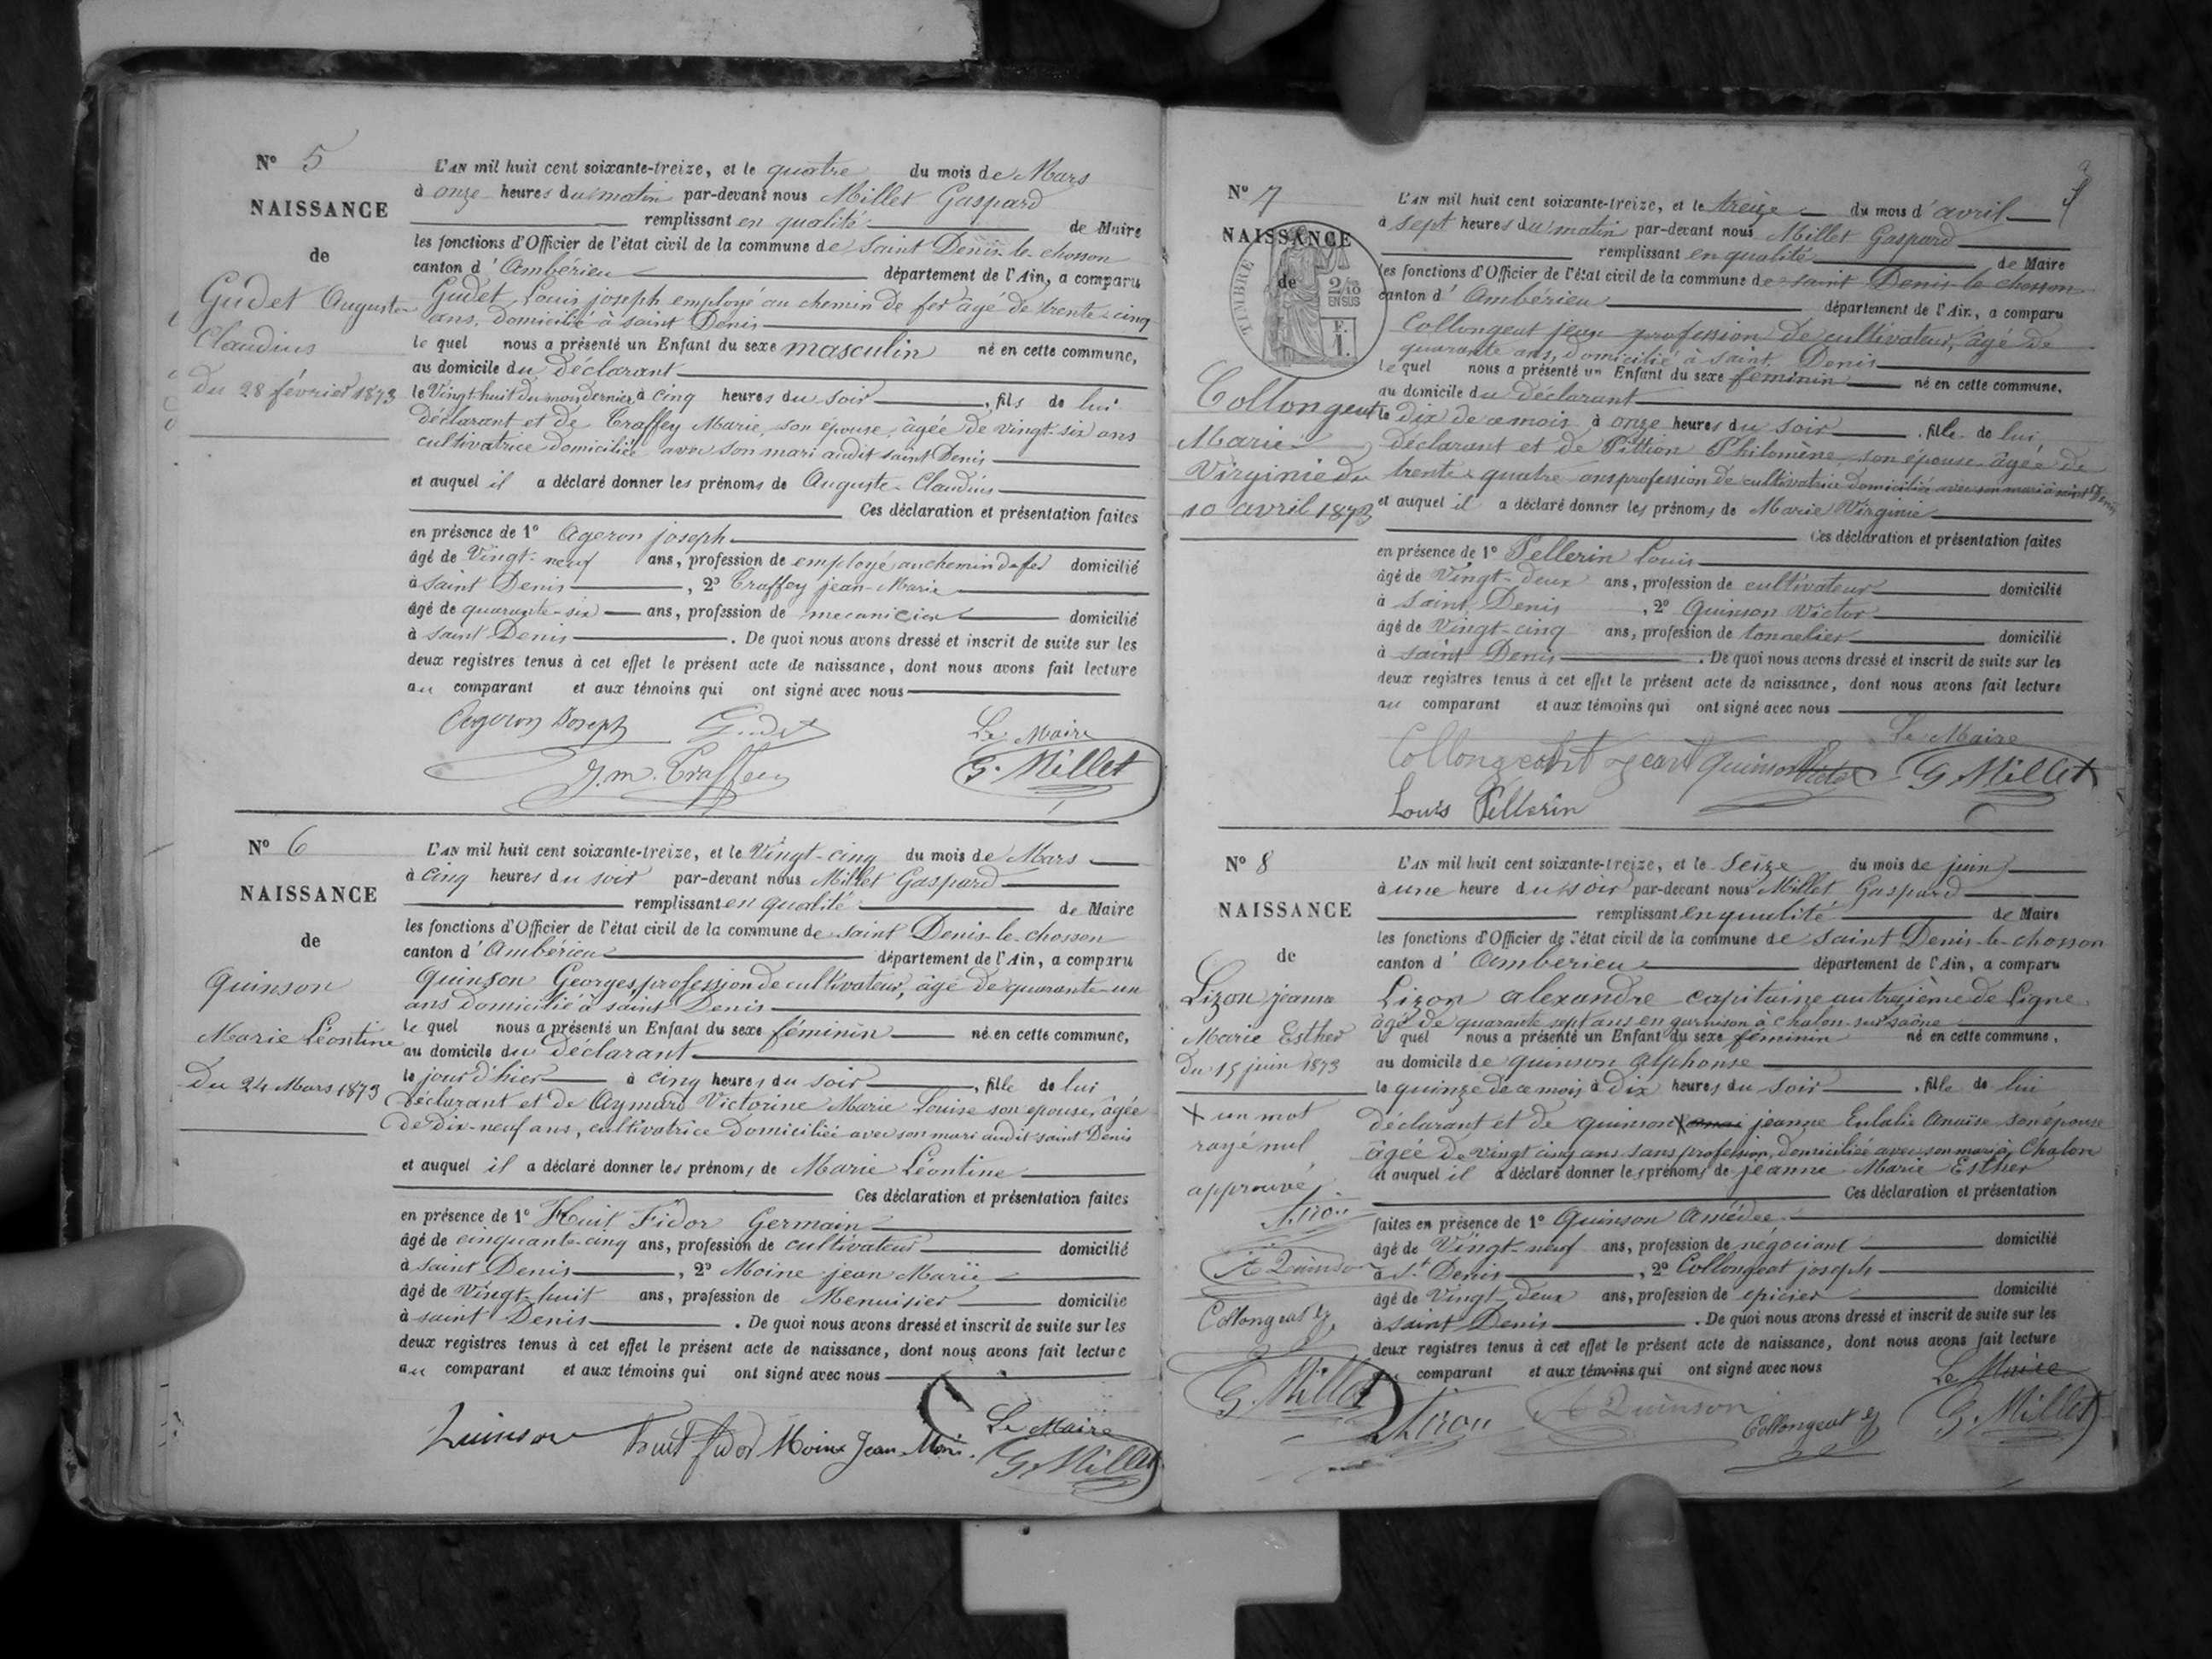 N° 5
NAISSANCE
de
Gudet Auguste
Claudius
du 28 février 1873
L'AN mil huit cent soixante-treize, et le quatre du mois de Mars
à onze heures du matin par-devant nous Millet Gaspard
remplissant en qualité de Maire
les fonctions d'Officier de l'état civil de la commune de Saint Denis-le-chosson
canton d'Ambérieu département de l'Ain, a comparu
Gudet Louis joseph employé au chemin de fer âgé de trente-cinq
ans, domicilié à saint Denis
le quel nous a présenté un Enfant du sexe masculin né en cette commune,
au domicile du déclarant
le Vingt huit du mois dernier à cinq heures du soir, fils de lui
déclarant et de Traffey Marie, son épouse, âgée de vingt-six ans
cultivatrice domiciliée avec son mari audit saint Denis
et auquel il a déclaré donner les prénoms de Auguste-Claudius
Ces déclaration et présentation faites
en présence de 1° Ageron joseph
âgé de Vingt-neuf ans, profession de employé au chemin de fer domicilié
à saint Denis, 2° Traffey jean-Marie
âgé de quarante-six ans, profession de mecanicien domicilié
à saint Denis. De quoi nous avons dressé et inscrit de suite sur les
deux registres tenus à cet effet le présent acte de naissance, dont nous avons fait lecture
au comparant et aux témoins qui ont signé avec nous
Ageron Joseph Gudet Le Maire
J. m. Traffey G. Millet
N° 6
NAISSANCE
de
Quinson
Marie Léontine
Du 24 Mars 1873
L'AN mil huit cent soixante-treize, et le Vingt-cinq du mois de Mars
à cinq heures du soir par-devant nous Millet Gaspard
remplissant en qualité de Maire
les fonctions d'Officier de l'état civil de la commune de saint Denis-le-chosson
canton d'Ambérieu département de l'Ain, a comparu
Quinson Georges, profession de cultivateur, âgé de quarante-un
ans domicilié à saint Denis
le quel nous a présenté un Enfant du sexe féminin né en cette commune,
au domicile du déclarant
le jour d'hier à cinq heures du soir, fille de lui
déclarant et de Aymard Victorine Marie Louise son epouse, âgée
de dix-neuf ans, cultivatrice domiciliée avec son mari audit saint Denis
et auquel il a déclaré donner les prénoms de Marie Léontine
Ces déclaration et présentation faites
en présence de 1° Huit Fidor Germain
âgé de cinquante-cinq ans, profession de cultivateur domicilié
à saint Denis, 2° Moine jean Marie
âgé de Vingt-huit ans, profession de Menuisier domicilié
à saint Denis. De quoi nous avons dressé et inscrit de suite sur les
deux registres tenus à cet effet le présent acte de naissance, dont nous avons fait lecture
au comparant et aux témoins qui ont signé avec nous
Quinson huit fidor Moine Jean Marie Le Maire
G. Millet
N° 7
NAISSANCE
de
TIMBRE
2/10
EN SUS
F.
1.
Collongeat
Marie
Virginie du
10 avril 1873
L'AN mil huit cent soixante-treize, et le treize du mois d'avril
à sept heures du matin par-devant nous Millet Gaspard
remplissant en qualité de Maire
les fonctions d'Officier de l'état civil de la commune de saint Denis-le-chosson
canton d'Ambérieu département de l'Ain, a comparu
Collongeat jean profession de cultivateur, âgé de
quarante ans, domicilié à saint Denis
le quel nous a présenté un Enfant du sexe féminin né en cette commune.
au domicile du déclarant
le dix de ce mois à onze heures du soir, fille de lui
déclarant et de Pittion Philomène, son épouse âgée de
trente-quatre ans profession de cultivatrice domiciliée avec son mari à saint Denis
et auquel il a déclaré donner les prénoms de Marie Virginie
Ces déclaration et présentation faites
en présence de 1° Pellerin Louis
âgé de Vingt-deux ans, profession de cultivateur domicilié
à saint Denis, 2° Quinson Victor
âgé de Vingt-cinq ans, profession de tonnelier domicilié
à saint Denis. De quoi nous avons dressé et inscrit de suite sur les
deux registres tenus à cet effet le présent acte de naissance, dont nous avons fait lecture
au comparant et aux témoins qui ont signé avec nous
Le Maire
Collongeat jean Quinson Victor G Millet
Louis Pellerin
N° 8
NAISSANCE
de
Lizon jeanne
Marie Esther
Du 15 juin 1873
X un mot
rayé nul
approuvé
A Quinson
Collongeat j
G. Millet
L'AN mil huit cent soixante-treize, et le Seize du mois de juin
à une heure du soir par-devant nous Millet Gaspard
remplissant en qualité de Maire
les fonctions d'Officier de l'état civil de la commune de saint Denis-le-chosson
canton d'Amberieu département de l'Ain, a comparu
Lizon alexandre capitaine au tresième de Ligne
âgé de quarante sept ans en garnison à chalon-sur-saône
le quel nous a présenté un Enfant du sexe féminin né en cette commune.
au domicile de quinson Alphonse
le quinze de ce mois à dix heures du soir, fille de lui
déclarant et de quinson X jeanne Eulalie Anaïse son épouse
âgée de vingt cinq ans sans profession, domiciliée avec son mari à Chalon
et auquel il a déclaré donner les prénoms de jeanne Marie Esther
Ces déclaration et présentation
faites en présence de 1° Quinson Amédée,
âgé de Vingt-neuf ans, profession de négociant domicilié
à St Denis, 2° Collongeat joseph
âgé de Vingt-deux ans, profession de épicier domicilié
à saint Denis. De quoi nous avons dressé et inscrit de suite sur les
deux registres tenus à cet effet le présent acte de naissance, dont nous avons fait lecture
comparant et aux témoins qui ont signé avec nous
Le Maire
A Quinson Collongeat j G. Millet